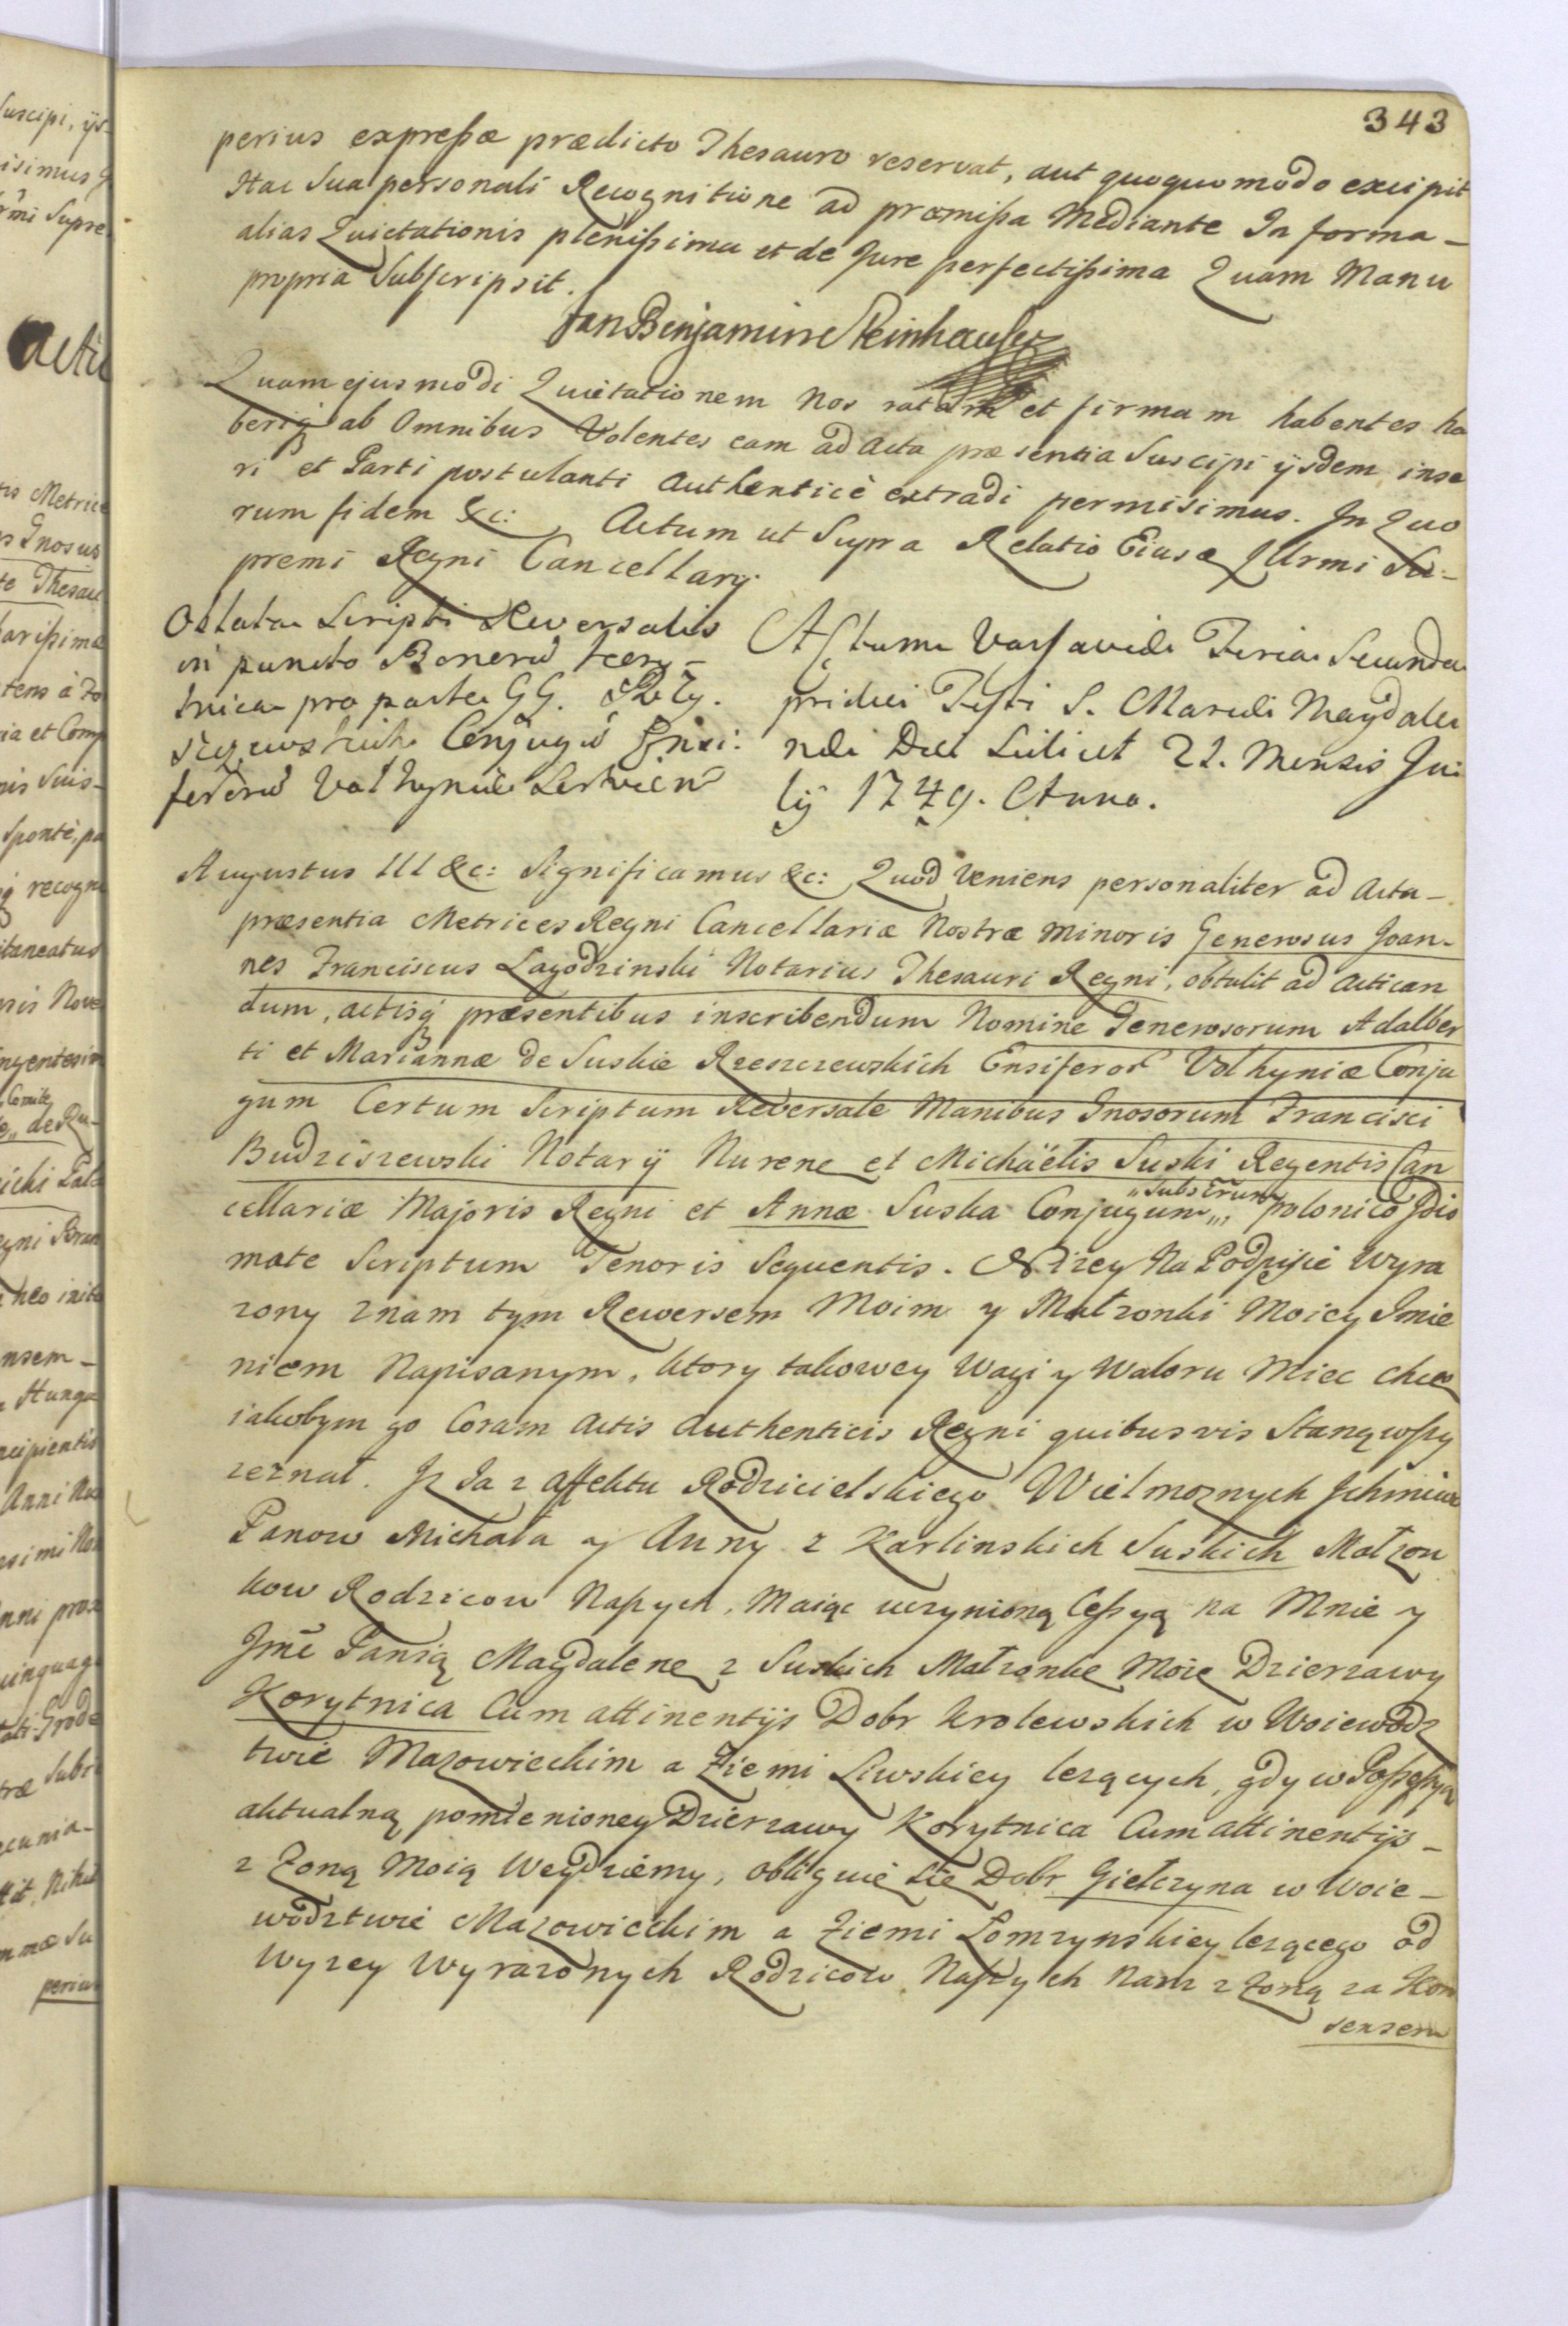 343
perius expressæ prædicto Thesauro reservat, aut quoquomodo excipit
Hac Sua personali Recognitione ad præmissa Mediante In forma –
alias Quietationis plenissima et de Jure perfectissima Quam Manu
propria Subscripsit.
Jan Benjamin Steinhauser
Quam ejusmodi Quietationem Nos ratam et firmam habentes ha
beriq ab Omnibus Volentes eam ad Acta præsentia Suscipi ijsdem inse
ri et Parti postulanti Authenticè extradi permisimus. In Quo
rum fidem &c: Actum ut Supra Relatio Eiusdem Illrmi Su-
premi Regni Cancellarij.
Oblata Scripti Reversalis
in puncto Bonerũ Kory-
tnica pro parte GG. Rze-
szewskich Conjugũ Ensi:
ferorũ Volhyniæ Serviēñ
Actum Varsaviæ Feria Secunda
pridie Festi S. Mariæ Magdale
næ Die Scilicet 21. Mensis Ju
lij 1749. Anno.
Augustus III &c: Significamus &c: Quod Veniens personaliter ad Acta –
præsentia Metrices Regni Cancellariæ Nostræ Minoris Generosus Joan-
nes Franciscus Lagodzinski Notarius Thesauri Regni, obtulit ad Actican
dum, actisq præsentibus inscribendum Nomine Generosorum Adalber
ti et Mariannæ de Suskie Rzeszewskich Ensiferor Volhyniæ Conju
gum Certum Scriptum Reversale Manibus Gnosorum Francisci
Budziszewski Notarij Nurene et Michäelis Suski Regentis Can
cellariæ Majoris Regni et Annæ Suska Conjugum „Subscrum„ polonico Idio
mate Scriptum Tenoris Sequentis. Nizey Na Podpisie Wyra
zony znam tym Rewersem Moim y Małzonki Moiey Imie
niem Napisanym, ktory takowey Wagi y Waloru Miec chce
iakobym go Coram Actis Authenticis Regni quibusvis Stanąwszy
zeznał. Jz Ja z Affektu Rodzicielskiego Wielmoznych Ichmciow
Panow Michała y Anny z Karlinskich Suskich Małzon
kow Rodzicow Naszych, Maiąc uczynioną Cessyą na Mnie y
Jmc Panią Magdalenę z Suskich Małzonkę Moię Dzierzawy
Korytnica Cum attinentijs Dobr Krolewskich w Woiewodz
twie Mazowieckim a Ziemi Liwskiey lezących, gdy w Possessyą
aktualną pomienioney Dzierzawy Korytnica Cum attinentijs –
z Zoną Moią Weydziemy, obliguię się Dobr Giełczyna w Woie –
wodztwie Mazowieckim a Ziemi Lomzynskiey lezącego od
Wyzey Wyrazonych Rodzicow Naszych Nam z Zoną za Kon
sensem